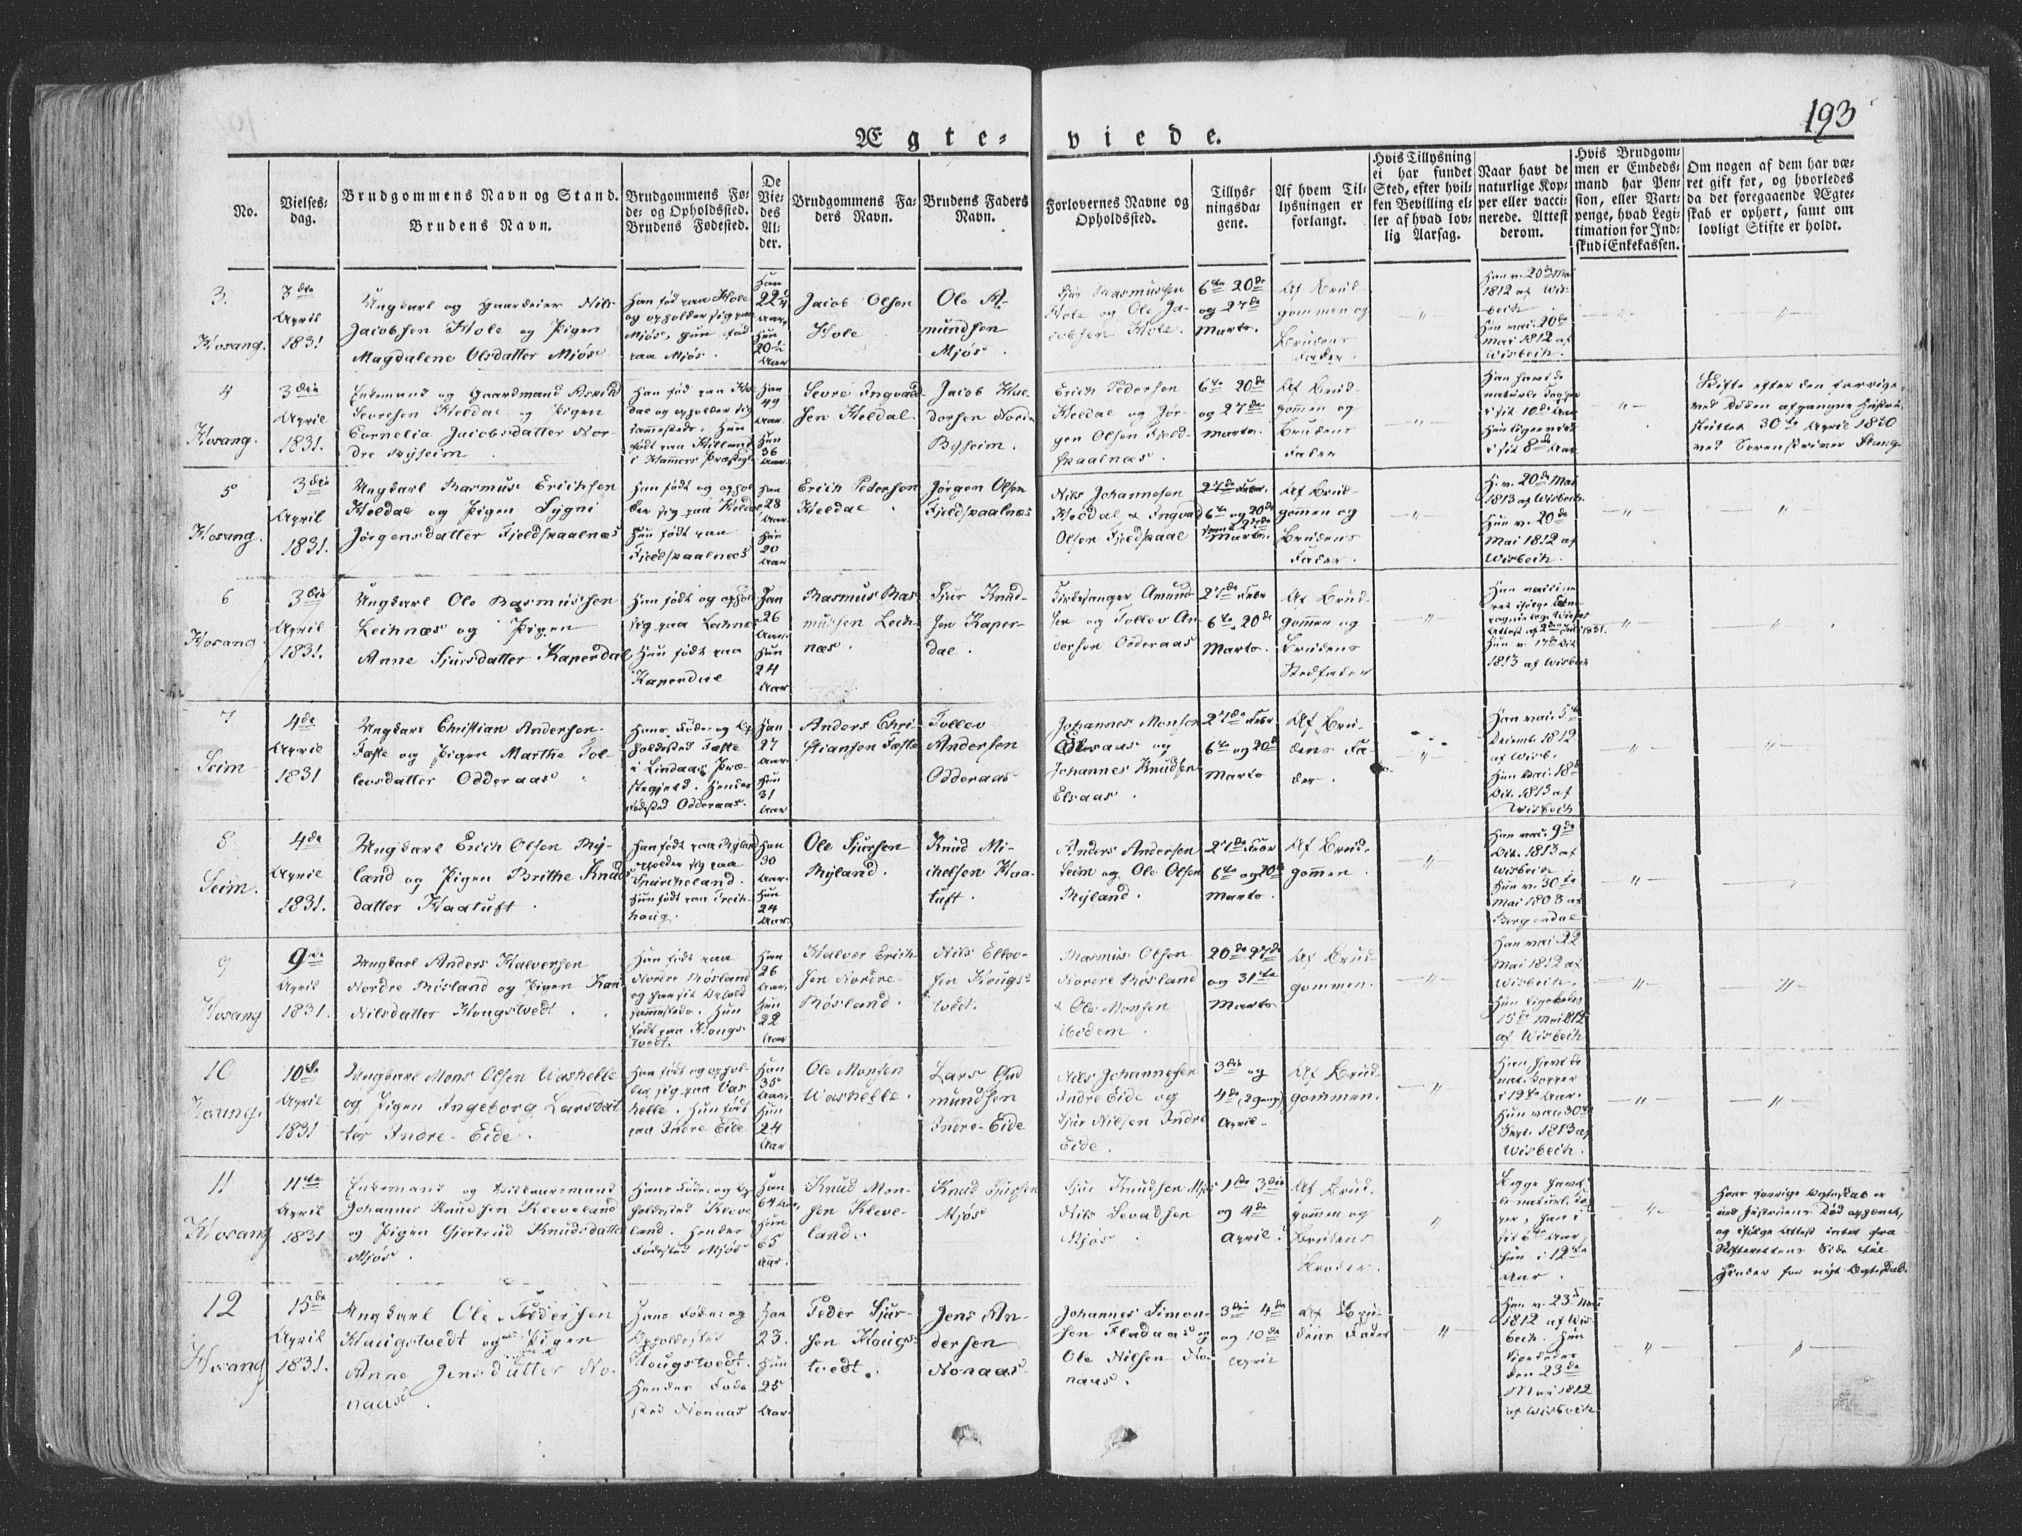 193
Ægte-viede.
No.
Vielses-
dag.
Brudgommens Navn og Stand.
Brudens Navn.
Brudgommens Fø-
de- og Opholdssted.
Brudens Fødested.
De
Vie-
des
Al-
der.
Brudgommens Fa-
ders Navn.
Brudens Faders
Navn.
Forlovernes Navne og
Opholdssted.
Tillys-
ningsda-
gene.
Af hvem Til-
lysningen er
forlangt.
Hvis Tillysning
ei har fundet
Sted, efter hvil-
ken Bevilling el-
ler af hvad lov-
lig Aarsag.
Naar havt de
naturlige Kop-
per eller vacci-
nerede. Attest
derom.
Hvis Brudgom-
men er Embeds-
mand har Pen-
sion, eller Vart-
penge, hvad Legi-
timation for Ind-
skud i Enkekassen.
Om nogen af dem har væ-
ret gift før, og hvorledes
da det foregaaende Ægte-
skab er ophørt, samt om
lovligt Skifte er holdt.
3.
Hosang.
3die
April
1831
Ungkarl og Gaardeier Nils
Jacobsen Hole og Pigen
Magdalene Olsdatter Mjøs
Han fød paa Hole
og opholder sig paa
Mjøs, hun fød
paa Mjøs.
Han
22
Aar
Hun
20
Aar
Jacob Olsen
Hole
Ole A-
mundsen
Mjøs.
Rasmussen
Hole og Ole Ja-
cobsen Hole.
6te 20de
og 27de
Marts.
Af Brud-
gommen og
Brudens
Fader.
Han v. 20de Mai
1812 af Wis-
bech
Hun vai. 20de
Mai 1812 af
Wisbech.
4
Hosang.
3die
April
1831.
Enkemand og Gaardmand
Sevresen Heldal og Pigen
Cornelia Jacobsdatter Nor-
dre Byseim
Han fød paa Hel-
dal og opholder sig
sammesteds. Hun
født paa
i Hammers Præstegj.
Han
49
Aar
Hun
36
Aar
Sevre Ingvald-
sen Heldal.
Jacob Hal-
dorsen Nordre
Byseim.
Erich Pedersen
Heldal og Jør-
gen Olsen Fjeld-
skaalnæs.
6te 20de
og 27de
Marts.
Af Brud-
gommen og
Brudens
Fader
Han havt de
naturle Kopper
i sit 10de Aar
Hun ligeledes
i sit 8de Aar
Skifte efter den forrige
ved Døden afgangne Hustru,
sluttet 30te April 1830
ved Sorenskriver Stang
5
Hosang.
3die
April
1831.
Ungkarl Rasmus Erichsen
Heldal og Pigen Sygni
Jørgensdatter Fjeldskaalnæs
Han født og ophol-
der sig paa Heldal,
Hun født paa
Fjeldskaalnæs
Han
28
Aar
Hun
20
Aar
Erich Pedersen
Heldal
Jørgen Olsen
Fjeldskaalnæs
Nils Johannesen
Heldal & Ingvald
Olsen Fjeldskaal
27de Febr.
6te og 20de
samt 27de
Marts.
Af Brud-
gommen og
Brudens
Fader.
H. v. 20de Mai
1813 af Wisbech.
Hun v. 20de
Mai 1812 af
Wisbech
6
Hosang
3die
April
1831.
Ungkarl Ole Rasmussen
Leihnæs og Pigen
Anne Sjursdatter Kaperdal
Han født og ophol.
sig paa Leihnæs
Hun født paa
Kaperdal
Han
26
Aar.
Hun
24
Aar
Rasmus Ras-
mussen Leih-
næs.
Sjur Knud-
sen Kaper-
dal.
Kirkesanger Amund-
sen og Tollev An-
dersen Odderaas
27de Febr
6te 20de
Marts.
Af Brud-
gommen og
Brudens
Stedfader
Hun v. 17de
1813 af Wisbech
7
Seim
4de
April
1831
Ungkarl Christian Andersen
Fæste og Pigen Marthe Tol-
levsdatter Odderaas
Hans Føde- og Op-
holdssted Fæste
i Lindaas Præ-
stegjeld. Hendes
Fødested Odderaas.
Han
27
Aar
Hun
31
Aar
Anders Chri-
stiansen Fæste
Tollev
Andersen
Odderaas
Johannes Monsen
Elsaas og
Johannes Knudsen
Elsaas.
27de Febr
6te og 20de
Marts
Af Bru-
dens Fa-
der.
Han vai. 5te
Decemb 1812
af Wisb.
Hun vai. 18de
Oct. 1813 af
Wisbech
8
Seim.
4de
April
1831.
Ungkarl Erich Olsen Ry-
land og Pigen Brithe Knuds-
datter Kaatuft.
Han født paa Ryland
opholder sig paa
Hun født paa
Han
30
Aar.
Hun
24
Aar.
Ole Sjursen
Ryland.
Knud Mi-
chelsen Kaa-
tuft.
Anders Andersen
Seim og Ole Olsen
Ryland.
27de Febr
6te og 20de
Marts.
Af Brud-
gommen.
Han vai. 9de
Oct. 1813 af
Wisbech
Hun v. 30te
Mai 1808 af
Bergendal
9
Hosang
9de
April
1831.
Ungkarl Anders Halversen
Nordre Røsland og Pigen Kari
Nilsdatter Hougstvedt.
Han født paa
Nordre Røsland
og har sit Ophold
sammesteds. Hun
født paa Hougs-
tvedt.
Han
26
Aar.
Hun
22
Aar
Halver Erich-
sen Nordre-
Røsland.
Nils Ellev-
sen Hougs-
tvedt.
Rasmus Olsen
Nordre Røsland
& Ole Monsen
ibidem.
20de 27de
og 31te
Marts
Af Brud-
gommen.
Han vai 22
Mai 1812 af
Wisbech.
Hun ligeledes
15de Mai 1812
af Wisbech
10
Hosang.
10de
April
1831
Ungkarl Mons Olsen Washelle
og Pigen Ingeborg Larsdat-
ter Indre-Eide.
Han født og ophol-
der sig paa Vas-
helle. Hun født
paa Indre Eide
Han
35
Aar.
Hun
24
Aar
Ole Monsen
Washelle.
Lars Gud-
mundsen
Indre-Eide
Nils Johannesen
Indre Eide og
Sjur Nilsen Indre
Eide.
3die og
4de (2 gange)
April.
Af Brud-
gommen.
Han havt de
nat. Kopper
i 19de Aar.
Hun vai. 30te
Sept. 1813 af
Wisbech.
11
Hosang
11te
April
1831
Enkemand og
Johannes Knudsen Kleveland
og Pigen Giertrud Knudsdatter
Mjøs.
Hans Føde- og Op-
holdssted Kleve-
land. Hendes
Fødested Mjøs
Han
64 Aar,
Hun
65
Aar.
Knud Mon-
sen Kleve-
land.
Knud Sjursen
Mjøs
Sjur Knudsen Mjøs
Nils Sevadsen
Mjøs
1ste 3die
og 4de
April.
Af Brud-
gommen og
Brudens
Broder.
Begge havt
de naturl. Kop-
per, Han i
sit 6te Aar,
Hun i 12te
Aar.
Hans forrige Ægteskab er
ved Hustruens Død ophævet,
og ifølge Attest intet fra
Skifterettens Side til
Hinder for nyt Ægteskab.
12
Hosang
15de
April
1831.
Ungkarl Ole Pedersen
Haugstvedt og Pigen
Anne Jensdatter No-
naas.
Hans Føde- og
Opholdssted
Hougstvedt.
Hendes Føde-
sted Nonaas
Han
23.
Hun
25
Aar.
Peder Sjur-
sen Hougs-
tvedt.
Jens An-
dersen
Nonaas.
Johannes Simon-
sen Fladaas og
Ole Nilsen No-
naas.
3die 4de
og 10de
April
Af Bru-
dens Fader
Han v. 23de Mai
1812 af Wis-
bech. Hun
ligeledes
den 23de
Mai 1812
af Wisbech